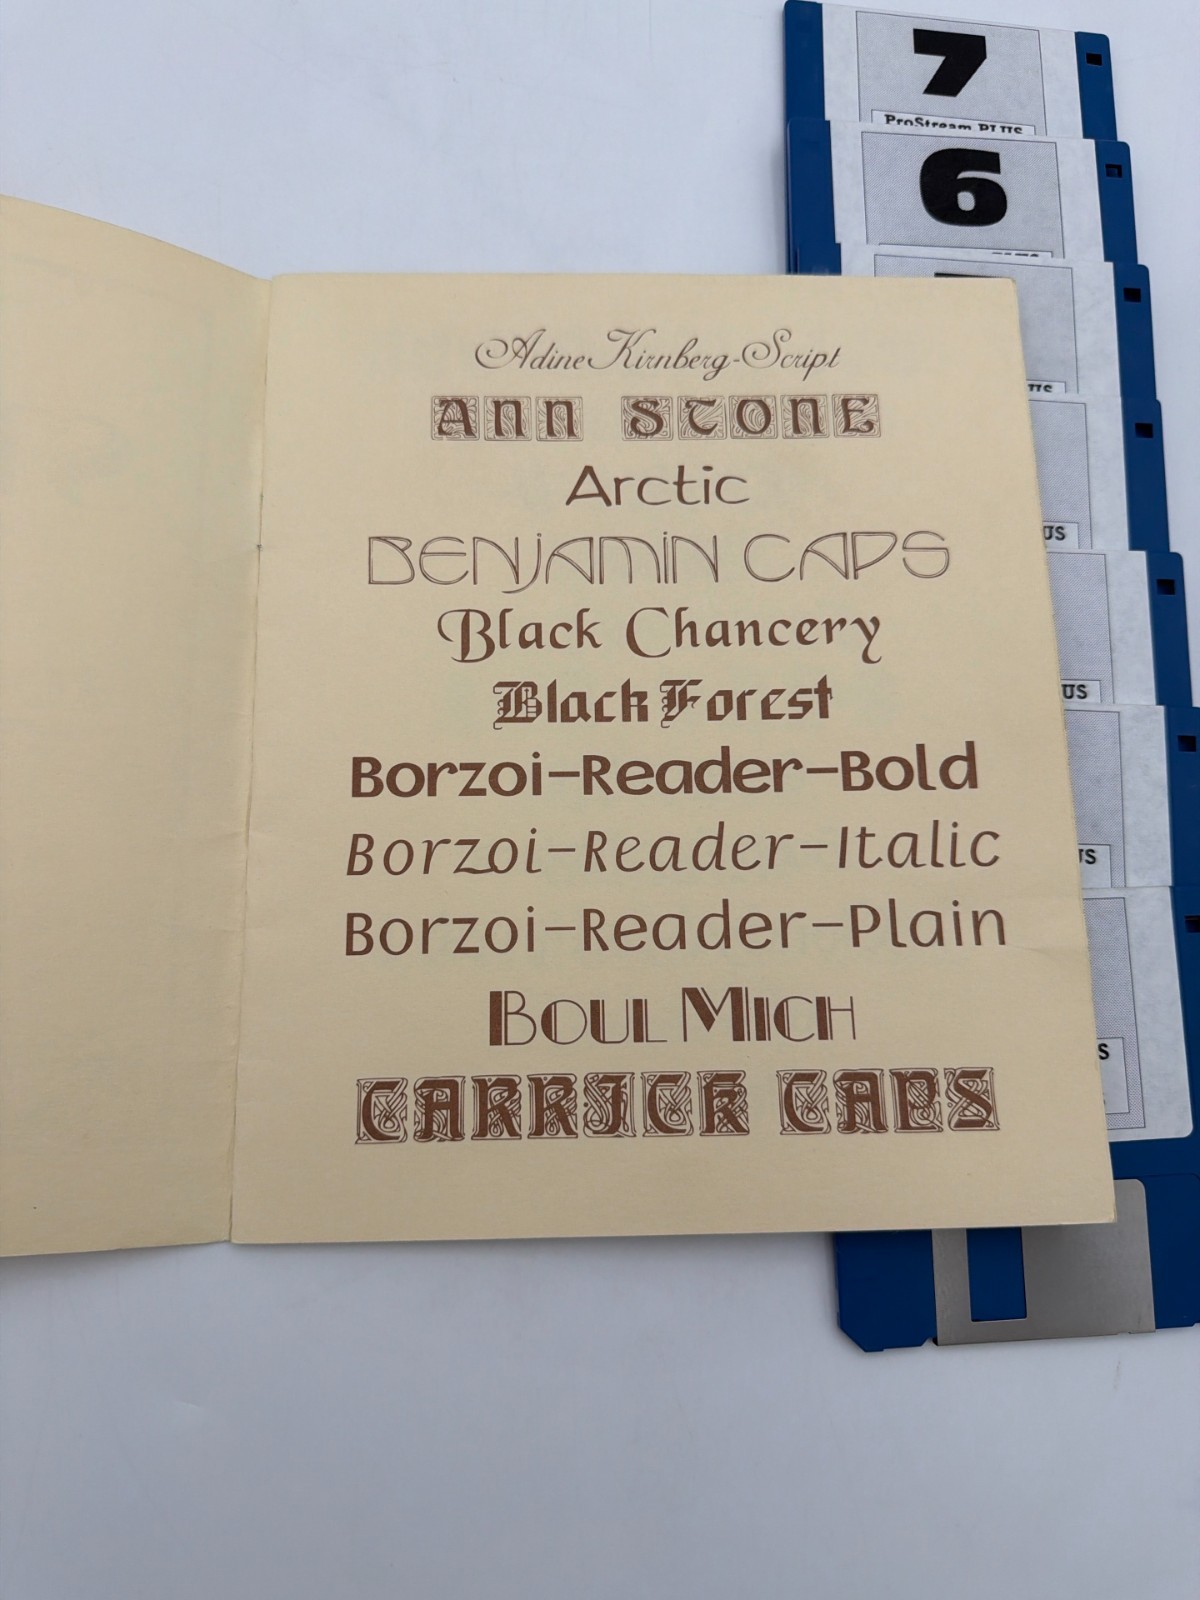 7
ProStream PLUS
6
US
US
US
US
S
Adine Kirnberg-Script
ANN STONE
Arctic
BENJAMIN CAPS
Black Chancery
Black Forest
Borzoi-Reader-Bold
Borzoi-Reader-Italic
Borzoi-Reader-Plain
BOUL MICH
CARRICK CAPS